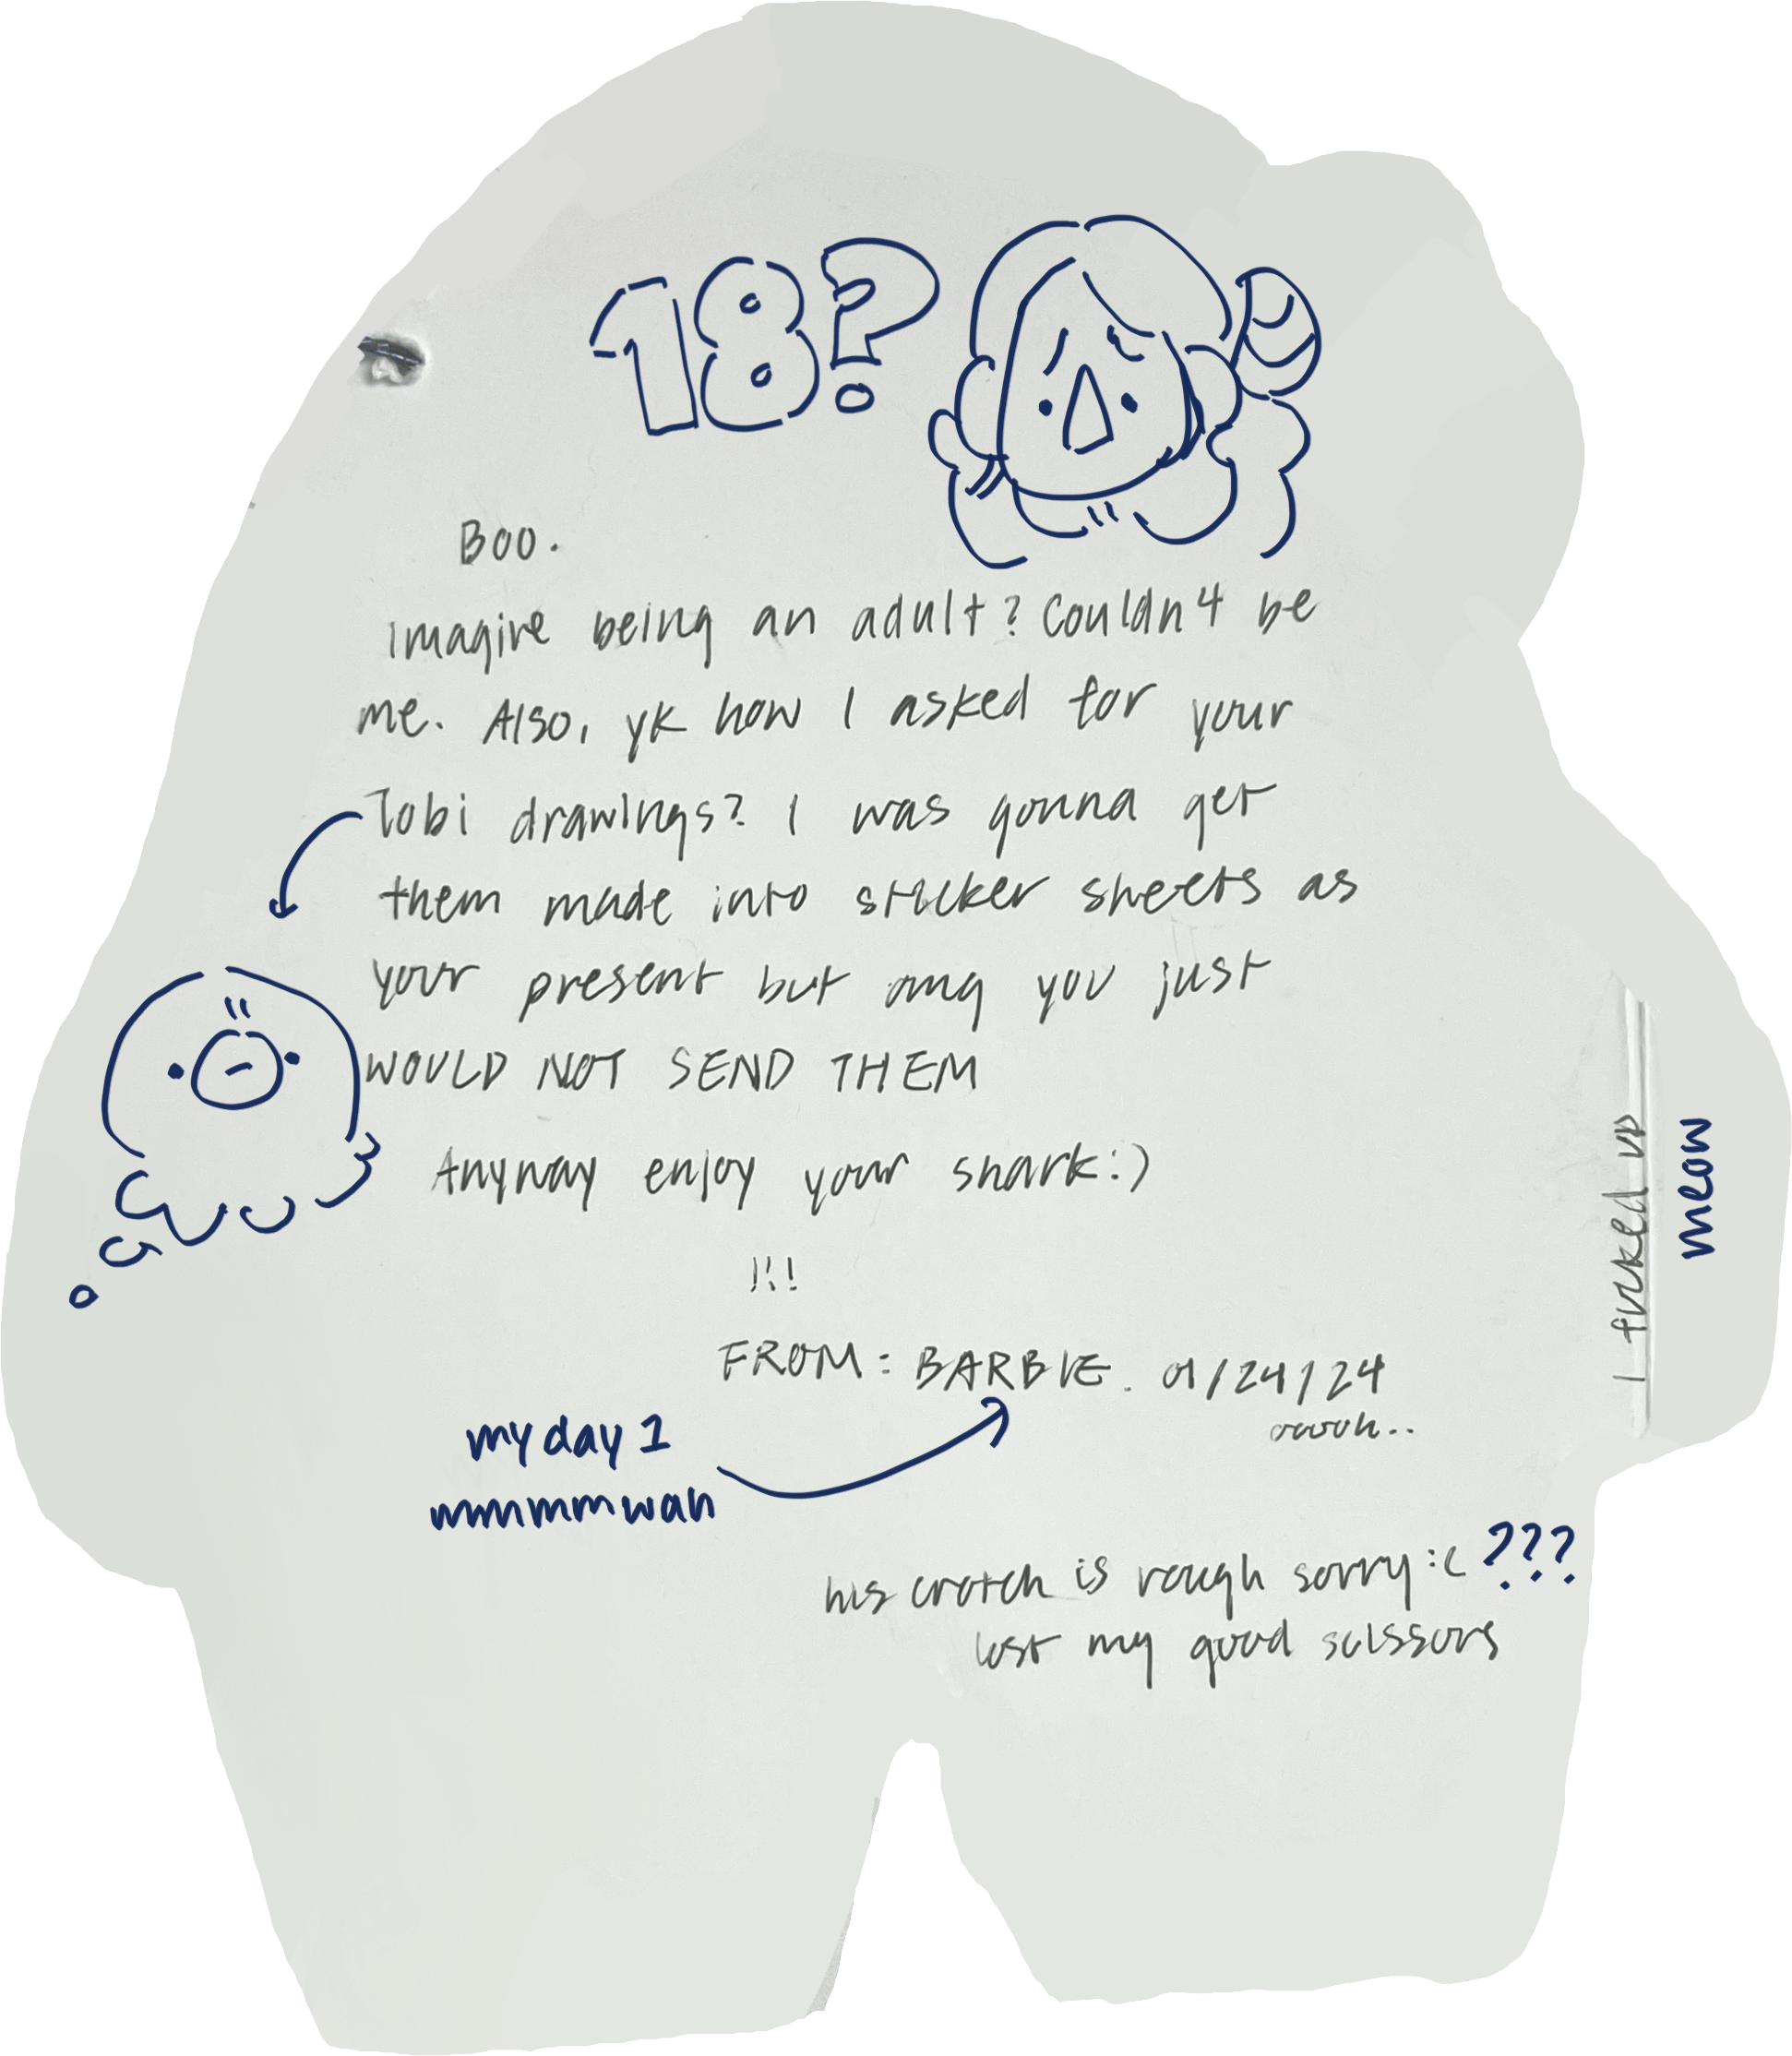 18?
BOO.
imagine being an adult? Couldn't be
me. Also, yk how I asked for your
Tobi drawings? I was gonna get
them made into sticker sheets as
your present but omg you just
WOULD NOT SEND THEM
Anyway enjoy your shark:)
!!!
FROM: BARBIE. 01/24/24
ooooh..
my day 1
mmmmmwah
his crotch is rough sorry :( ???
lost my good scissors
I fucked up
meow